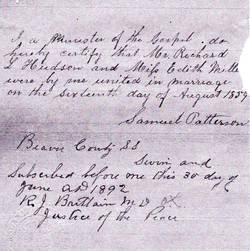 I a Minister of the Gospel do
hereby certify that Mr. Richard
L Hudson and Miss Edith Mille
were by me united in marriage
on the sixteenth day of August 1859
Samuel Patterson
Beaver County SS
Sworn and
Subscribed before me this 30 day of
June AD 1892
R. J. Brittain
Justice of the Peace